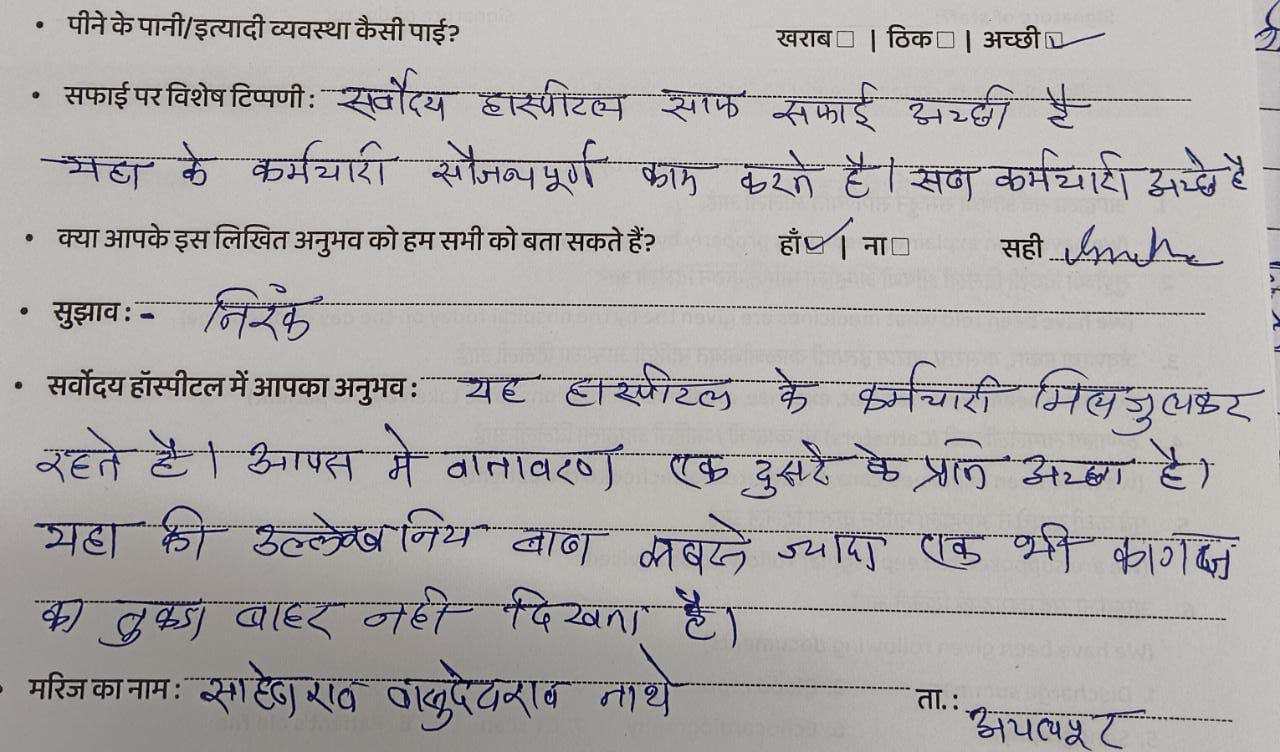 • पीने के पानी/इत्यादी व्यवस्था कैसी पाई? खराब☐ | ठिक☐ | अच्छी☑
• सफाई पर विशेष टिप्पणी: सर्वोदय हास्पीटल साफ सफाई अच्छी है
यहा के कर्मचारी सौजन्यपूर्ण काम करते है। सब कर्मचारी अच्छे है
• क्या आपके इस लिखित अनुभव को हम सभी को बता सकते हैं? हाँ☑ | ना☐ सही
• सुझाव: - निरंक
• सर्वोदय हॉस्पीटल में आपका अनुभव: यह हास्पीटल के कर्मचारी मिलजुलकर
रहते है। आपस मे वातावरण एक दुसरे के प्रति अच्छा है।
यहा की उल्लेखनिय बात सबसे ज्यादा एक भी कागज
का तुकडा बाहर नही दिखता है।
• मरिज का नाम: साहेबराव वासुदेवराव नाथे ता.: अचलपूर